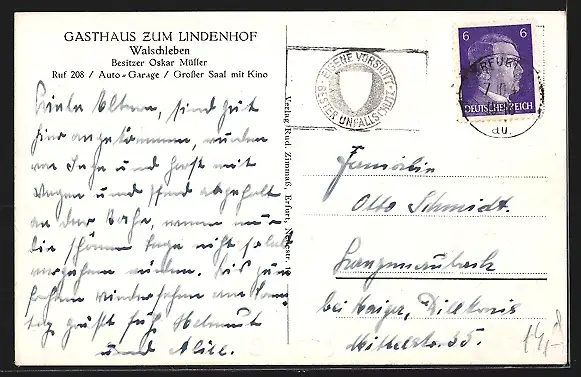 GASTHAUS ZUM LINDENHOF
Walschleben
Besitzer Oskar Müller
Ruf 208 / Auto-Garage / Großer Saal mit Kino
Liebe Eltern, sind gut
hier angekommen, wurden
von und Horst mit
Wagen und Pferd abgeholt
an der Bahn, wenn nur
die schönen Tage nicht so
vergehen würden. Bis zum
frohen Wiedersehen am Sonn-
tag grüßt Euch Helmut
und Alice.
Verlag Rud. Zimmaß, Erfurt,
EIGENE VORSICHT
BESTER UNFALLSCHUTZ
ERFURT
6 6
DEUTSCHES REICH
du.
Familie
Otto Schmidt.
Langenaubach
bei Haiger, Dillkreis
Mittelstr. 35.
14,-